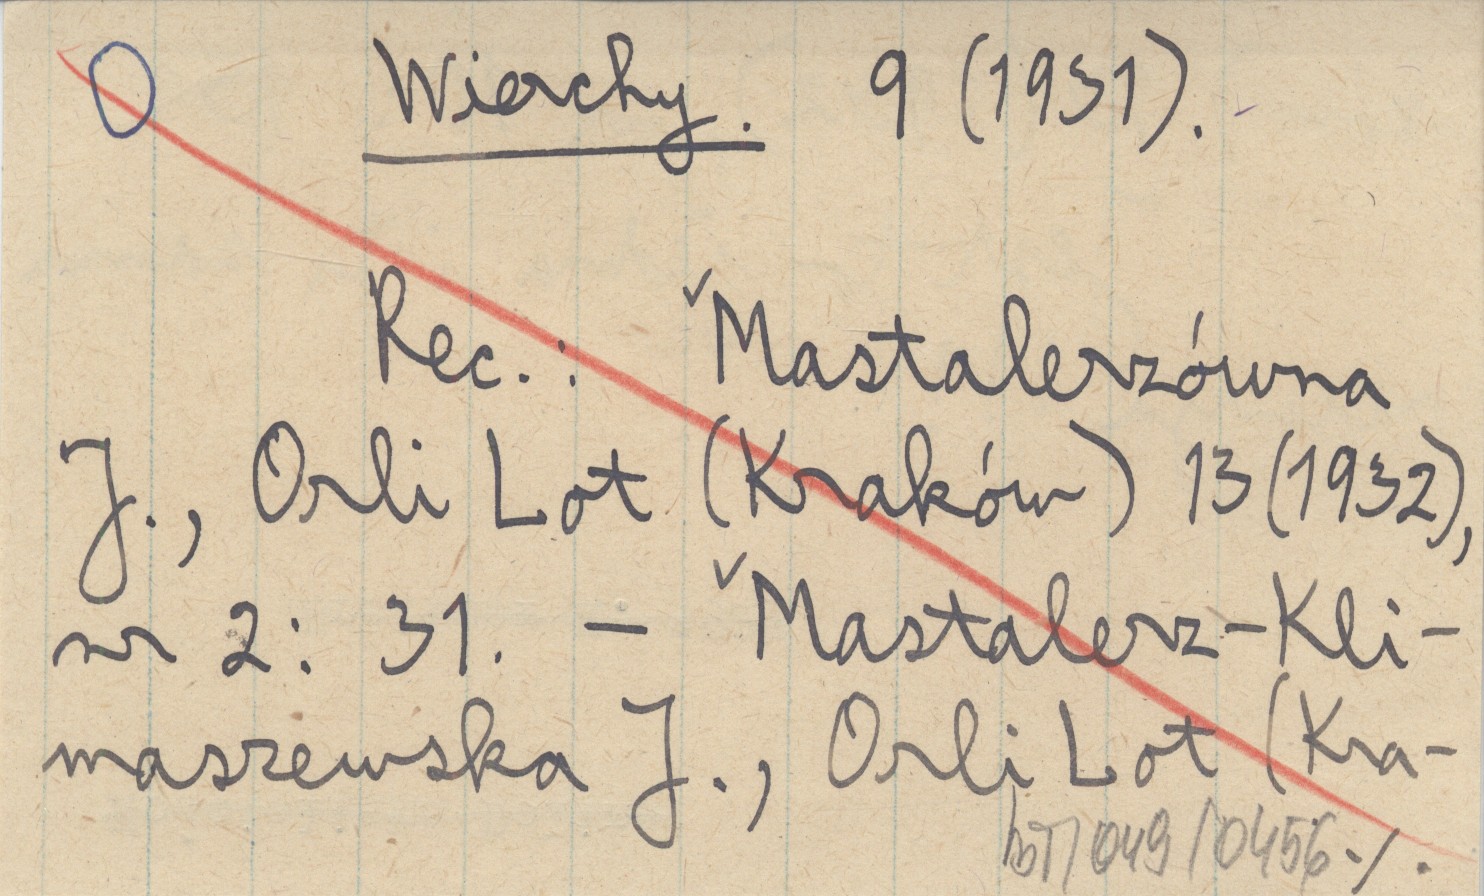 O Wierchy. 9 (1931).
Rec.: ✓Mastalerzówna
J., Orli Lot (Kraków) 13 (1932),
nr 2: 31. – ✓Mastalerz-Kli-
maszewska J., Orli Lot (Kra-
/049/0456 ./.